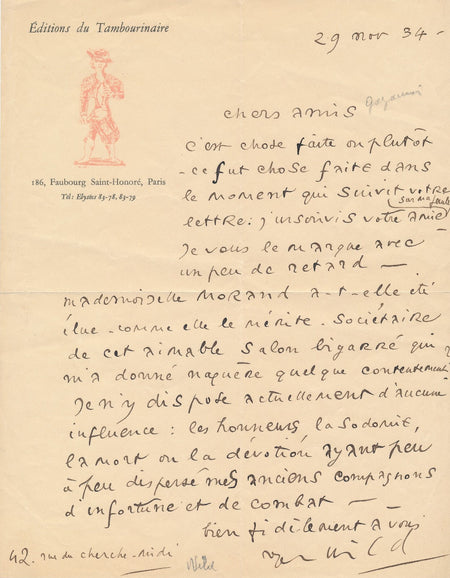 Éditions du Tambourinaire
29 nov 34 -
186, Faubourg Saint-Honoré, Paris
Tél: Elysées 83-78, 83-79
chers amis
c'est chose faite ou plutôt
- ce fut chose faite dans
le moment qui suivit votre
lettre: j'inscrivis votre amie
sur ma feuille
Je vous le marque avec
un peu de retard —
mademoiselle MORAND a-t-elle été
élue - comme elle le mérite - Sociétaire
de cet aimable Salon bigarré qui
m'a donné naguère quelque contentement?
Je n'y dispose actuellement d'aucune
influence : les honneurs, la Sodomie,
la mort ou la dévotion ayant peu
à peu dispersé mes anciens compagnons
d'infortune et de combat —
bien fidèlement à vous
Roger Wild
42. rue du cherche-midi
Wild